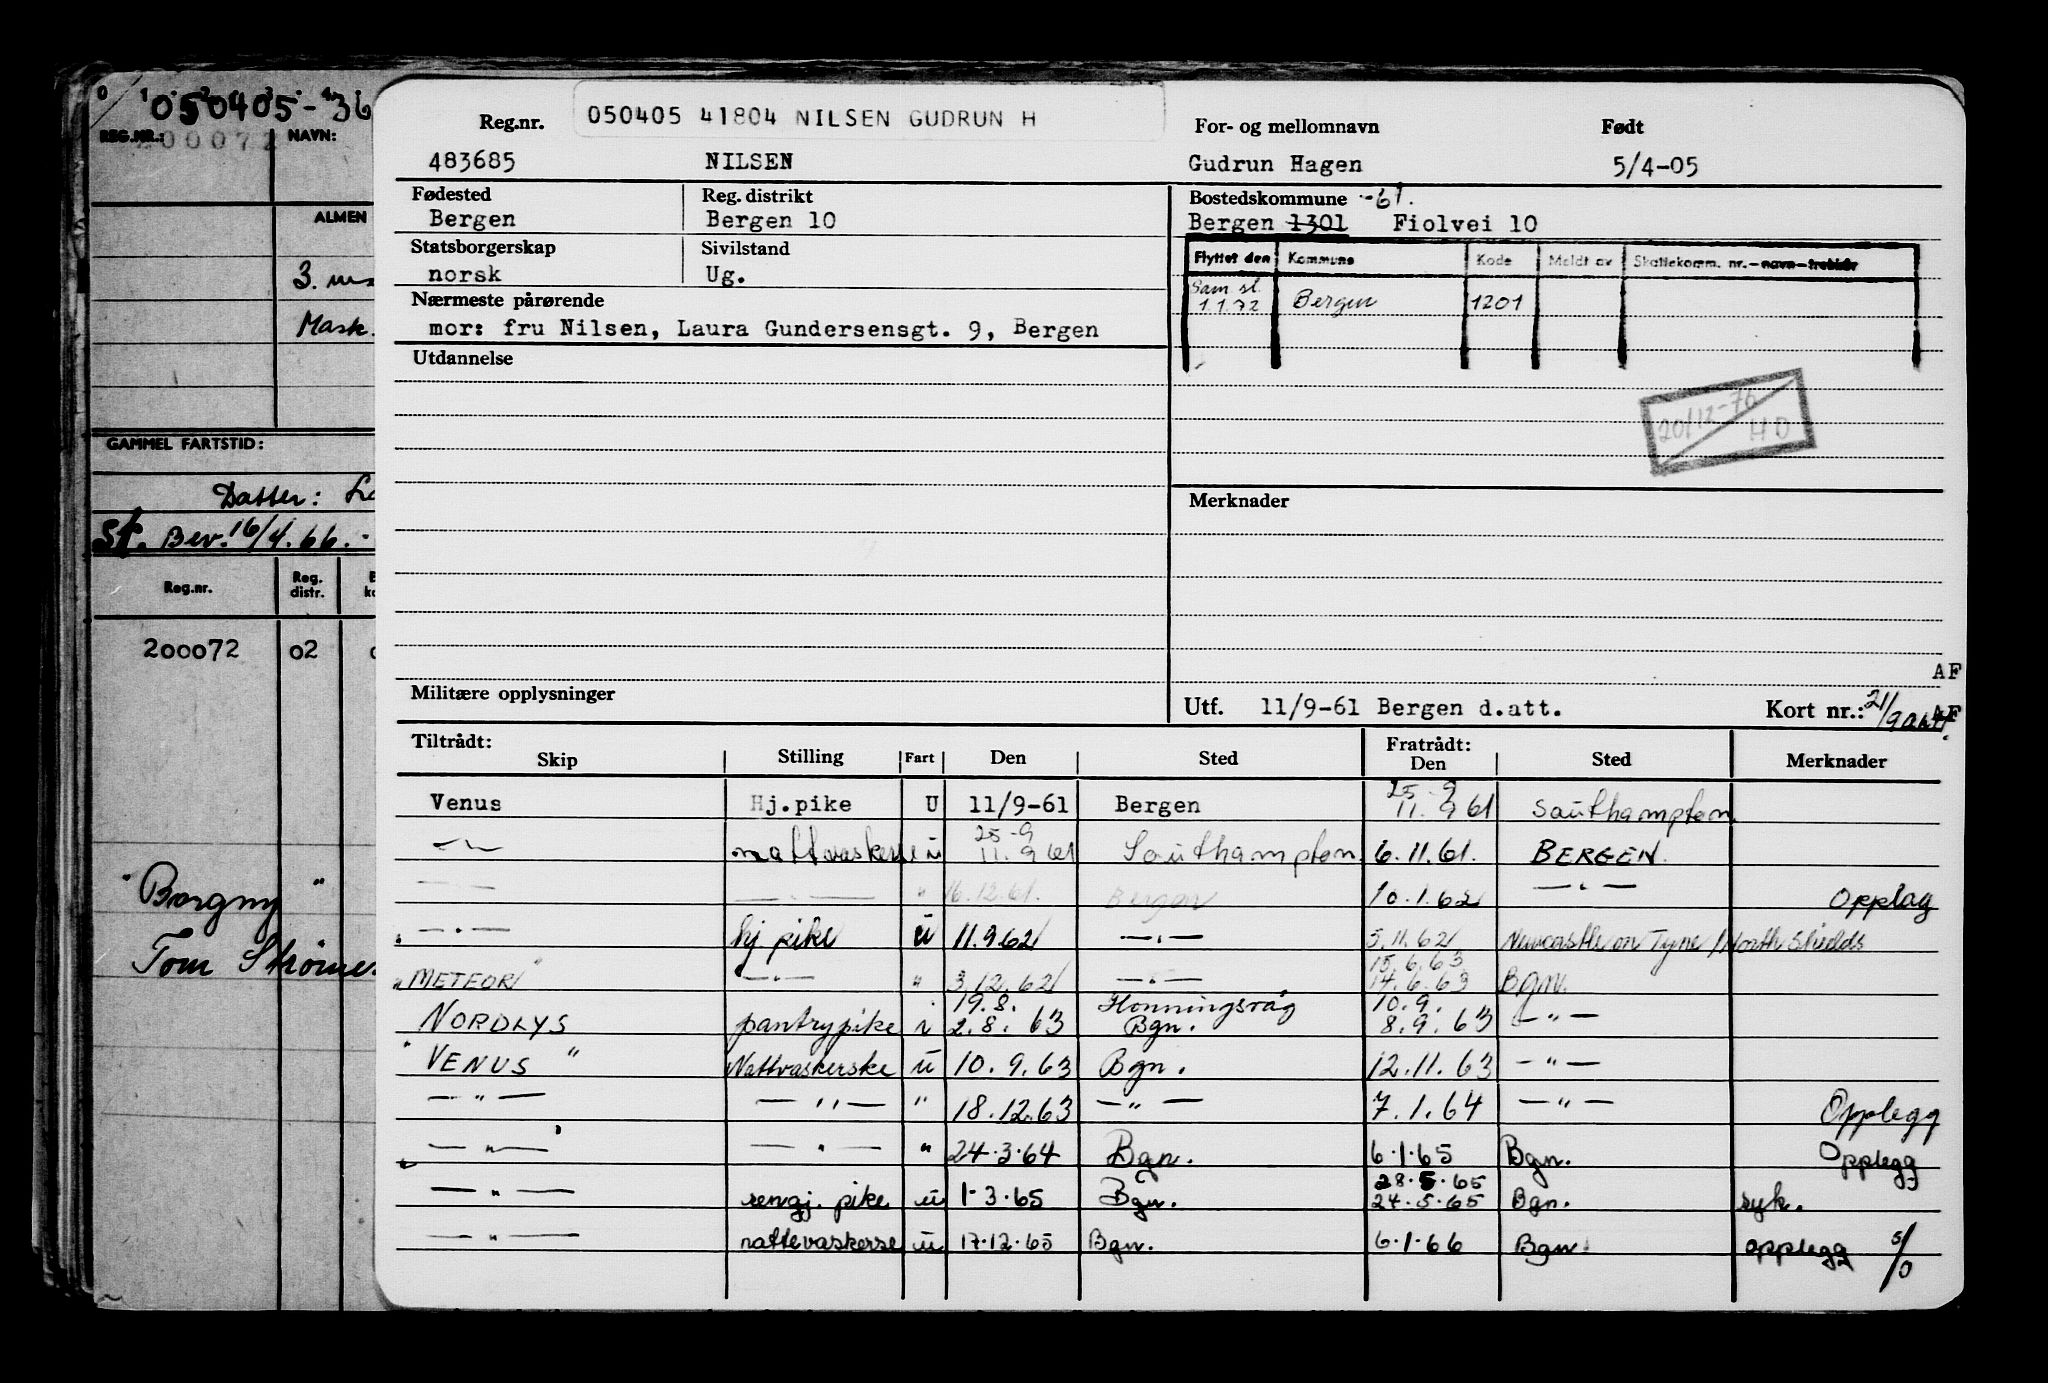 050405-36
REG.NR.: NAVN:
200072
ALMEN
3.
Mask.
GAMMEL FARTSTID:
Datter:
St. Bev. 16/4.66.-
Reg.nr. Reg. distr.
200072 02
"Borgny"
Tom
050405 41804 NILSEN GUDRUN H
Reg.nr. For- og mellomnavn Født
483685 NILSEN Gudrun Hagen 5/4-05
Fødested Reg. distrikt Bostedskommune -61.
Bergen Bergen 10 Bergen 1301 Fiolvei 10
Statsborgerskap Sivilstand
norsk Ug.
Flyttet den Kommune Kode Meldt av Skattekomm. nr.-navn-trekkår
Sam.sl. 1.1.72 Bergen 1201
Nærmeste pårørende
mor: fru Nilsen, Laura Gundersensgt. 9, Bergen
Utdannelse
20/12-76 HD
Merknader
AF
Militære opplysninger
Utf. 11/9-61 Bergen d.att. Kort nr.: 21/9 AF
Tiltrådt: Fratrådt:
Skip Stilling Fart Den Sted Den Sted Merknader
25-9
Venus Hj.pike U 11/9-61 Bergen 11.9 61 Southampton
25-9
-"- nattvaskerske u 11.9 61 Southampton 6.11.61. BERGEN.
-"- -"- " 16.12.61. Bergen 10.1.62 -"- Opplag
-"- hj. pike u 11.9 62 -"- 5.11.62 Newcastle on Tyne / North Shields
15.6.63
"METEOR" -"- " 3.12.62 -"- 14.6.63 Bgn.
19.8. Honningsvåg 10.9.
NORDLYS pantrypike i 2.8.63 Bgn. 8.9.63 -"-
"VENUS" Nattvaskerske u 10.9.63 Bgn. 12.11.63 -"-
-"- -"- " 18.12.63 -"- 7.1.64 -"- Opplegg
-"- -"- " 24.3.64 Bgn. 6.1.65 Bgn. Opplegg
28.5.65
-"- rengj. pike u 1-3.65 Bgn. 24.5.65 Bgn. syk.
-"- nattevaskerse u 17.12.65 Bgn. 6.1.66 Bgn. opplegg s/o